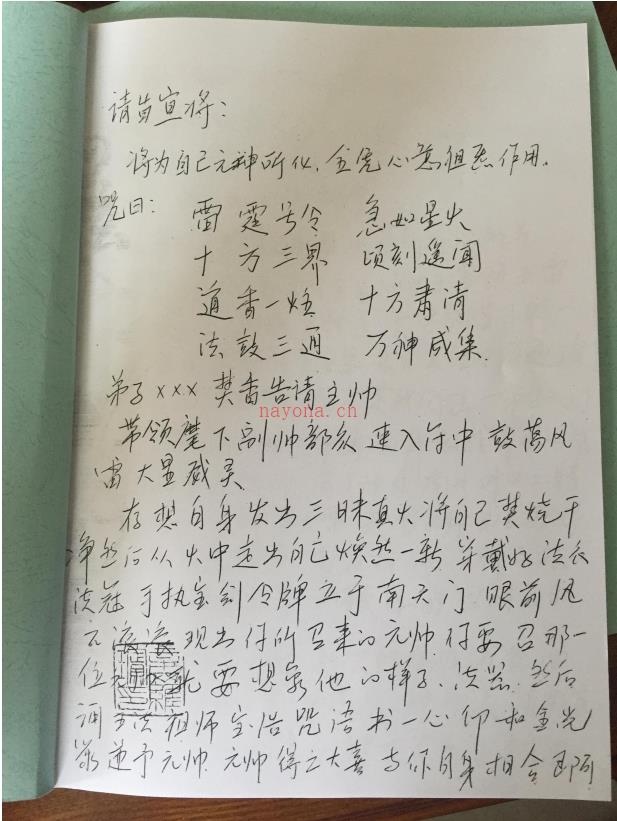 请旨宣将：
将为自己元神所化，全凭心意祖炁作用。
咒曰： 雷霆号令 急如星火
十方三界 顷刻遥闻
道香一炷 十方肃清
法鼓三通 万神咸集.
弟子xxx 焚香告请主帅
nayona.ch
带领麾下副帅部众 速入符中 鼓荡风
雷大显威灵
存想自身发出三昧真火将自己焚烧干
净然后从火中走出自己焕然一新 穿戴好法衣
法冠 手执宝剑令牌立于南天门 眼前风
云滚滚 现出你所召来的元帅 你要召那一
位 就要想象他的样子、法器 然后
诵 法祖师宝诰咒语书一心 和金光
递予元帅 元帅得之大喜 与你自身相合 即